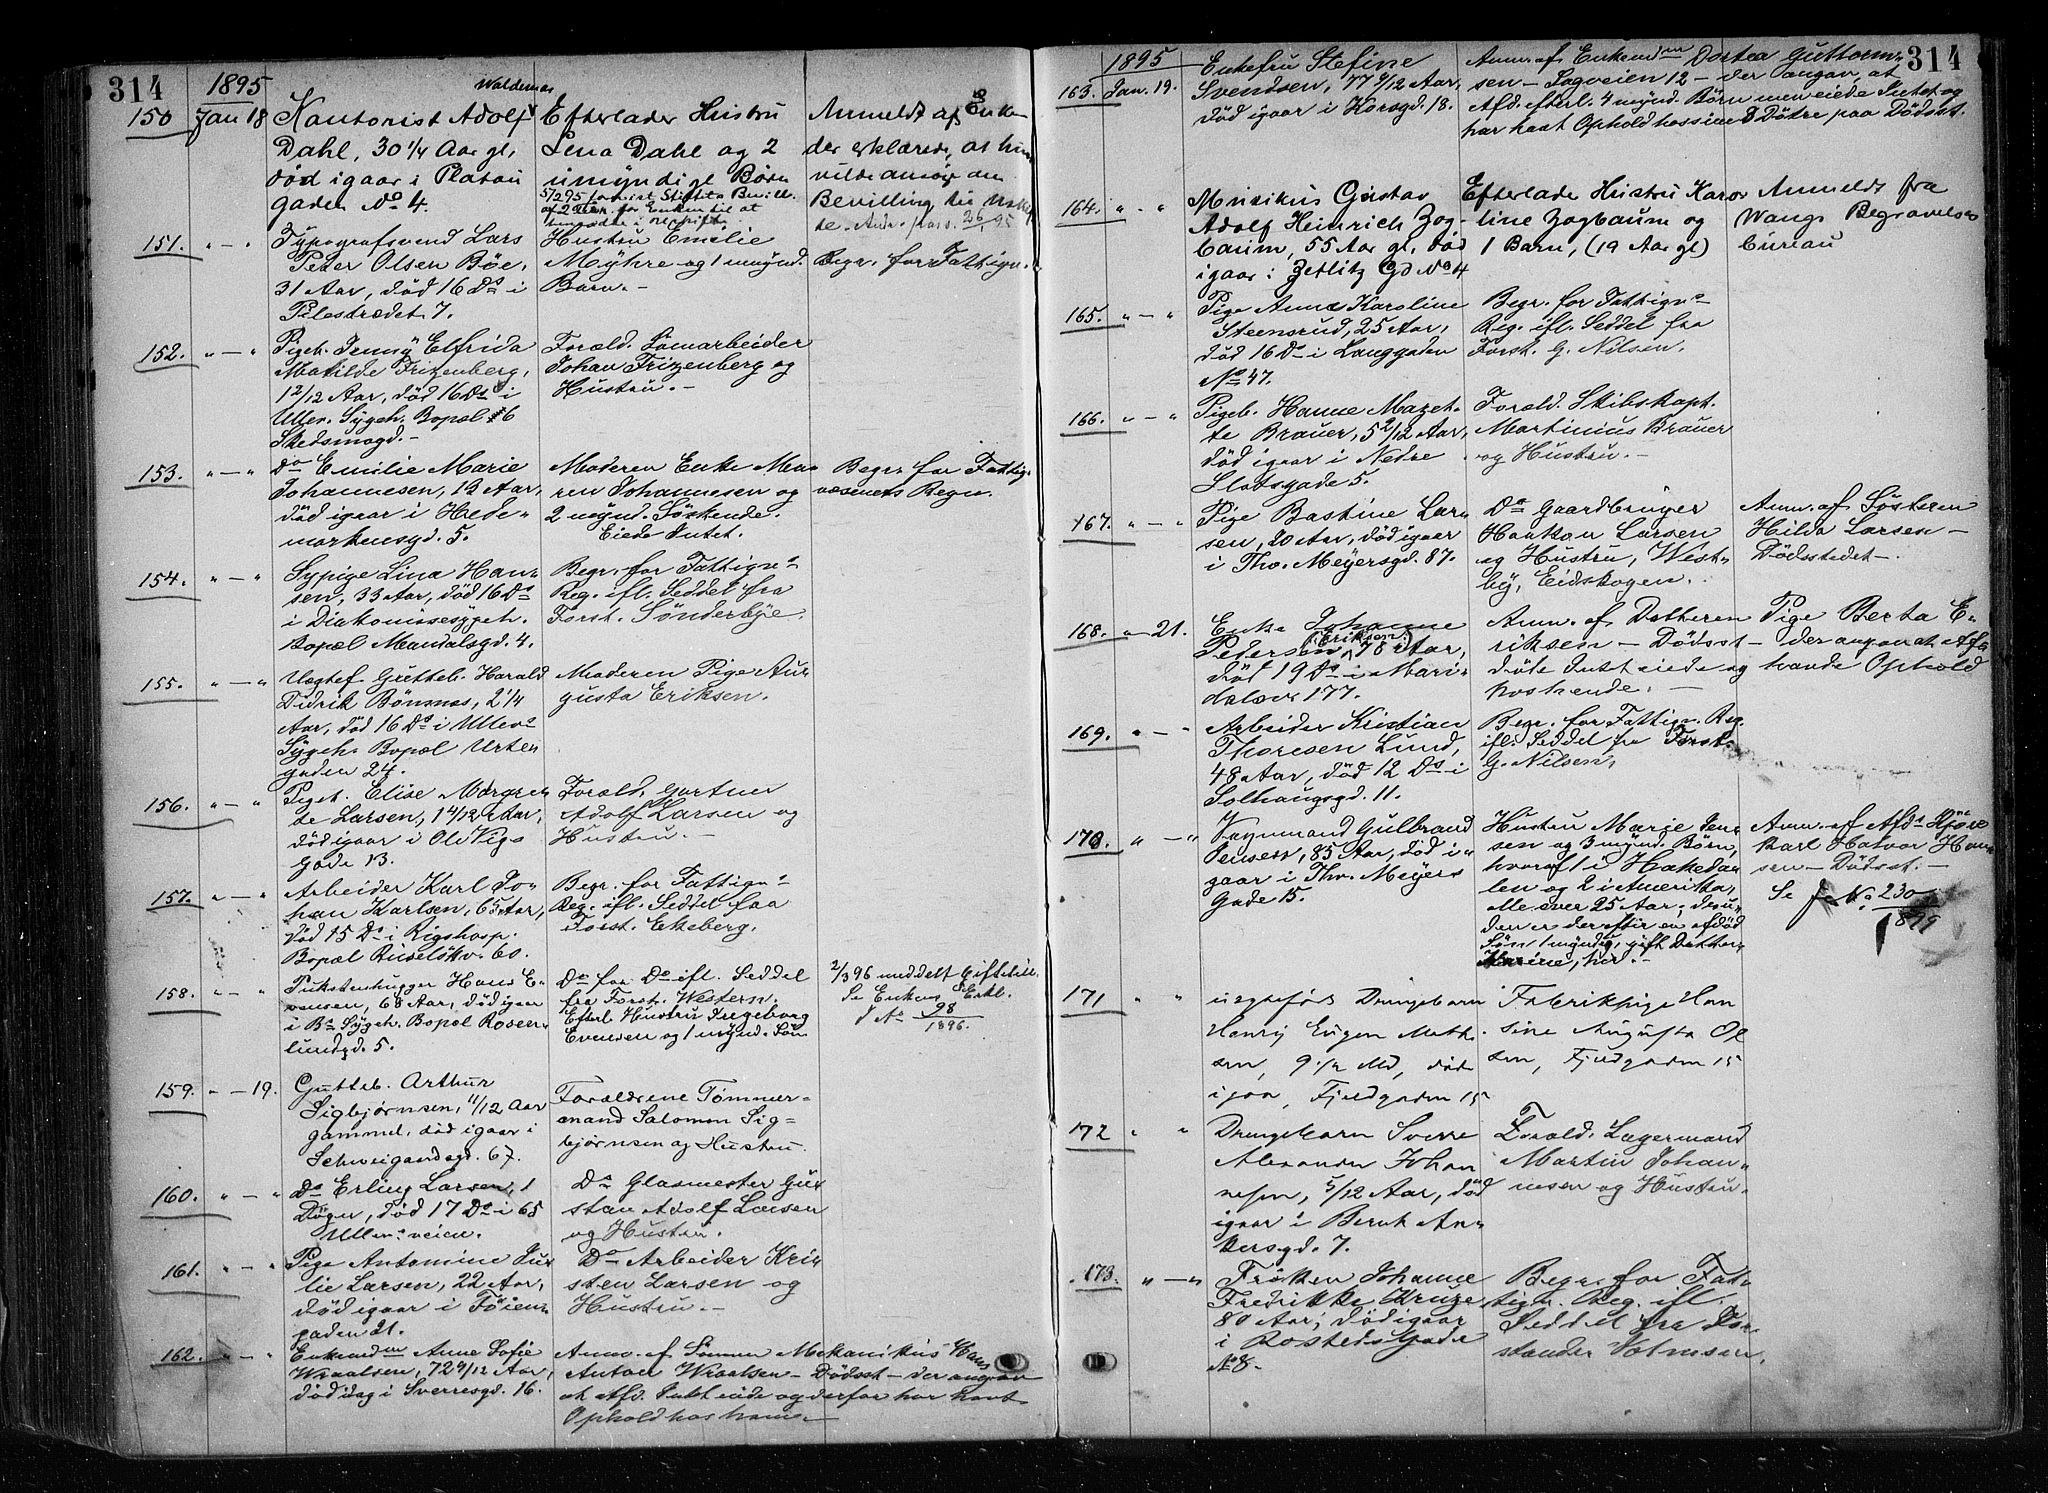 314
1895
150
Jan 18
Waldemar
Kontorist Adolf
Dahl, 30 1/4 Aar gl,
död igaar i Platou
gaden No 4.
Efterlader Hustru
Lena Dahl og 2
umyndige Børn
Anmeldt af Enken
der erklærede, at hun
vilde ansöge om
Bevilling
151.
" — "
Typografsvend Lars
Peder Olsen Böe,
31 Aar, död 16 Ds i
Pilestrædet 7.
Hustru Emelie
Myhre og 1 mynd.
Barn.—
Begr. for Fattigv.
152.
" — "
Pigeb. Jenny Elfrida
Matilde Frizenberg,
1 2/12 Aar, död 16 Ds i
Ullev. Sygeh. Bopæl 6
Skedsmogd.—
Foræld. Sömarbeider
Johan Frizenberg og
Hustru.—
153.
" — "
Do Emilie Marie
Johannesen, 12 Aar,
död igaar i Hede-
markensgd. 5.
Moderen Enke Ma-
ren Johannesen og
2 mynd. Söskende.
Eiede Intet.
Begr. for Fattig-
væsenets Regn.
154.
" — "
Sypige Lina Han-
sen, 33 Aar, död 16 Ds
i Diakonissesygeh.
Bopæl Mandalsgd. 4.
Begr. for Fattigv.s
Reg. ifl. Seddel fra
Forst. Sönderbye.
155.
" — "
Uægtef. Gutteb. Harald
Didrik Bönnes, 2 1/4
Aar, död 16 Ds i Ullev.
Sygeh. Bopæl Urte
gaden 24.
Moderen Pige Au-
gusta Eriksen.
156.
" — "
Pigeb. Elise Margre-
te Larsen, 1 4/12 Aar,
död igaar i Ole Vigs
Gade 13.
Foræld. Gartner
Adolf Larsen og
Hustru.—
157.
" — "
Arbeider Karl Jo-
han Karlsen, 65 Aar,
död 15 Ds i Rigshosp.
Bopæl Ruselökv. 60.
Begr. for Fattigv.s
Reg. ifl. Seddel fra
Forst. Ekeberg.
158.
" — "
Pukstenhugger Hans E-
vensen, 68 Aar, död igaar
i Bs Sygeh. Bopæl Rosen-
lundgd. 5.
Do for Do ifl. Seddel
fra Forst. Western.
Efterl. Hustru Ingeborg
Evensen og 1 mynd. Sön
2/3 96 meddelt Skiftetill.
Se Enkens Erkl.
J No 98
1896.
159.
" — 19.
Gutteb. Arthur
Sigbjørnsen, 11/12 Aar
gammel, död igaar i
Schweigaardsgd. 67.
Forældrene Tömmer-
mand Salomon Sig-
bjørnsen og Hustru.
160.
" — "
Do Erling Larsen, 1
Dögn, död 17 Ds i 65
Ullev. veien.
Do Glasmester Gu-
stav Adolf Larsen
og Hustru.
161.
" — "
Pige Antomine Ju-
lie Larsen, 22 Aar,
död igaar i Töien-
gaden 21.
Do Arbeider Kri-
sten Larsen og
Hustru.—
162.
" — "
Enkemadm Anne Sofie
Wraalsen, 72 9/12 Aar,
död idag i Sverresgd. 16.
Anm. af Sönnen Mekanikus Hans
Anton Wraalsen — Dödsst — der angav
at Afd. Intet eiede og derfor har havt
Ophold hos ham.—
314
1895
163.
Jan. 19.
Enkefru Stefine
Svendsen, 77 9/12 Aar,
död igaar i Korsgd. 18.
Anm. af Enkemdm Dortea Guttorm-
sen — Sogneien 12 — der angav, at
Afd. efterl. 4 mynd. Börn men eiede Intet og
har havt Ophold hos sine Døtre paa Dödsst.
164.
" — "
Musikus Gustav
Adolf Heinrich Zog-
baum, 55 Aar gl, död
igaar i Zetlitz Gd No 4
Efterlade Hustru Karo-
line Zogbaum og
1 Barn, (19 Aar gl)
Anmeldt fra
Wangs Begravelses
bureau
165.
" — "
Pige Anna Karoline
Steensrud, 25 Aar,
död 16 Ds i Langgaden
No 47.
Begr. for Fattigv.s
Reg. ifl. Seddel fra
Forst. G. Nilsen.
166.
" — "
Pigeb. Hanne Mazet-
te Brauer, 5 2/12 Aar,
död igaar i Nedre
Slotsgade 5.
Foræld. Skibskapt.
Martinius Brauer
og Hustru.—
167.
" — "
Pige Bastine Lar-
sen, 20 Aar, död igaar
i Thv. Meyersgd. 87.
Do Gaardbruger
Haakon Larsen
og Hustru, West-
by, Eidskogen.
Anm. af Søsteren
Hilda Larsen —
Dödsstedet —.
168.
" — 21.
Enke Johanne
(Eriksen)
Pedersen, 78 Aar,
död 19 Ds i Mari-
dalsv. 177.
Anm. af Datteren Pige Berta E-
riksen — Dödsst — der angav at Afd.
døde Intet eiede og havde Ophold
hos hende.—
169.
" — "
Arbeider Kristian
Thoresen Lund,
48 Aar, död 12 Ds i
Solhaugsgd. 11.
Begr. for Fattigv. Reg.
ifl. Seddel fra Forst.
G. Nilsen.
170.
" — "
Vognmand Gulbrand
Jensen, 85 Aar, död i-
gaar i Thv. Meyers
Gade 15.
Hustru Marie Jen-
sen og 3 mynd. Börn,
hvoraf 1 i Hakeda-
len og 2 i Amerika,
alle over 25 Aar; desu-
den er der efter en afdöd
Sön 1 myndig, gift Datter
Marine, her.—
Anm. af Afds
Karl Halvor Han-
sen — Dödsst.—
Se No 230
1899
171
" "
uægteföd Drengebarn
Henry Eugen Math
sen, 9 1/2 Md, død
igaar, Fjeldgaden 15
Fabrikpige Han
sine Augusta Ol
sen, Fjeldgaden 15
172
" "
Drengebarn Sverre
Alexander Johan
nesen, 5/12 Aar, död
igaar i Bernt An-
kersgd. 7.
Foræld. Lagermand
Martin Johan-
nesen og Hustru.
173.
" — "
Fröken Johanne
Fredrikke Kruze
80 Aar, död igaar
i Rosteds Gade
No 8.
Begr. for Fat-
tigv. Reg. ifl.
Seddel fra For-
stander Holmsen.